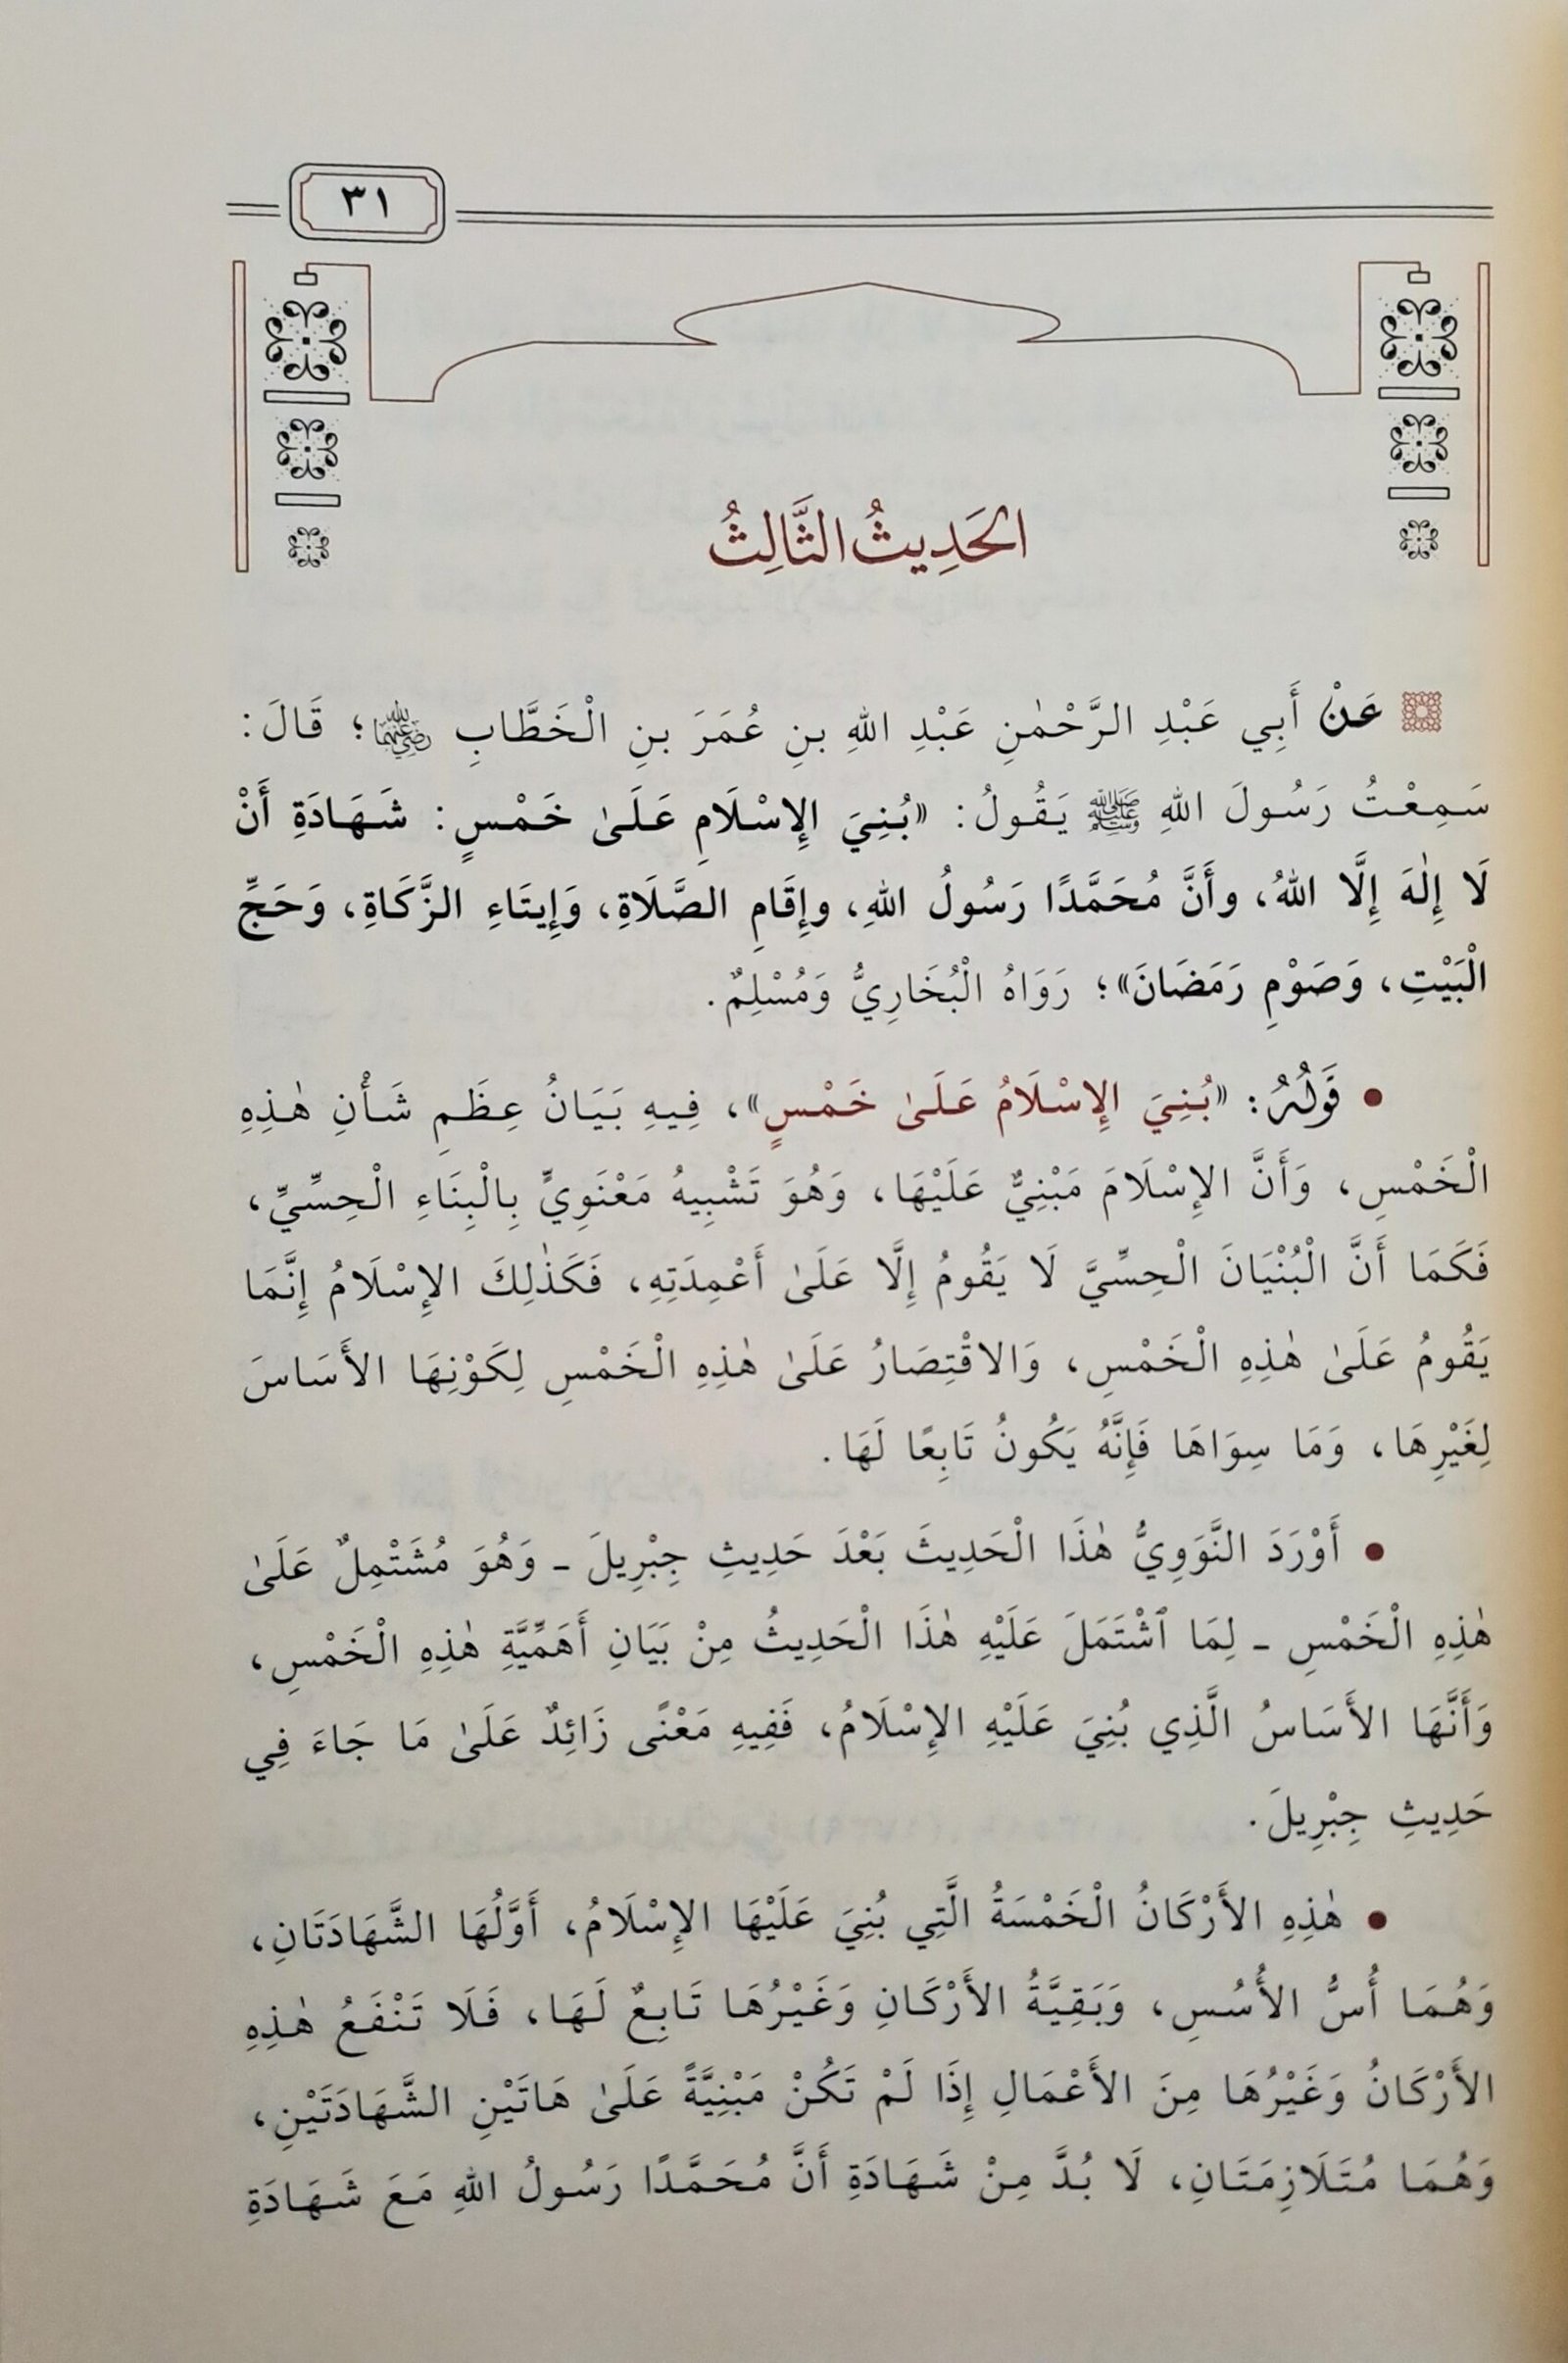 ٣١
الحَدِيثُ الثَّالِثُ
عَنْ أَبِي عَبْدِ الرَّحْمٰنِ عَبْدِ اللهِ بنِ عُمَرَ بنِ الْخَطَّابِ رضي الله عنهما؛ قَالَ:
سَمِعْتُ رَسُولَ اللهِ ﷺ يَقُولُ: «بُنِيَ الإِسْلَامِ عَلَىٰ خَمْسٍ: شَهَادَةِ أَنْ
لَا إِلٰهَ إِلَّا اللهُ، وأَنَّ مُحَمَّدًا رَسُولُ اللهِ، وإِقَامِ الصَّلَاةِ، وَإِيتَاءِ الزَّكَاةِ، وَحَجِّ
الْبَيْتِ، وَصَوْمِ رَمَضَانَ»؛ رَوَاهُ الْبُخَارِيُّ وَمُسْلِمٌ.
• قَولُهُ: «بُنِيَ الإِسْلَامُ عَلَىٰ خَمْسٍ»، فِيهِ بَيَانُ عِظَمِ شَأْنِ هٰذِهِ
الْخَمْسِ، وَأَنَّ الإِسْلَامَ مَبْنِيٌّ عَلَيْهَا، وَهُوَ تَشْبِيهُ مَعْنَوِيٍّ بِالْبِنَاءِ الْحِسِّيِّ،
فَكَمَا أَنَّ الْبُنْيَانَ الْحِسِّيَّ لَا يَقُومُ إِلَّا عَلَىٰ أَعْمِدَتِهِ، فَكَذٰلِكَ الإِسْلَامُ إِنَّمَا
يَقُومُ عَلَىٰ هٰذِهِ الْخَمْسِ، وَالاقْتِصَارُ عَلَىٰ هٰذِهِ الْخَمْسِ لِكَوْنِهَا الأَسَاسَ
لِغَيْرِهَا، وَمَا سِوَاهَا فَإِنَّهُ يَكُونُ تَابِعًا لَهَا.
• أَوْرَدَ النَّوَوِيُّ هٰذَا الْحَدِيثَ بَعْدَ حَدِيثِ جِبْرِيلَ ـ وَهُوَ مُشَتْمِلٌ عَلَىٰ
هٰذِهِ الْخَمْسِ ـ لِمَا ٱشْتَمَلَ عَلَيْهِ هٰذَا الْحَدِيثُ مِنْ بَيَانِ أَهَمِّيَّةِ هٰذِهِ الْخَمْسِ،
وَأَنَّهَا الأَسَاسُ الَّذِي بُنِيَ عَلَيْهِ الإِسْلَامُ، فَفِيهِ مَعْنًى زَائِدٌ عَلَىٰ مَا جَاءَ فِي
حَدِيثِ جِبْرِيلَ.
• هٰذِهِ الأَرْكَانُ الْخَمْسَةُ الَّتِي بُنِيَ عَلَيْهَا الإِسْلَامُ، أَوَّلُهَا الشَّهَادَتَانِ،
وَهُمَا أُسُّ الأُسُسِ، وَبَقِيَّةُ الأَرْكَانِ وَغَيْرُهَا تَابِعٌ لَهَا، فَلَا تَنْفَعُ هٰذِهِ
الأَرْكَانُ وَغَيْرُهَا مِنَ الأَعْمَالِ إِذَا لَمْ تَكُنْ مَبْنِيَّةً عَلَىٰ هَاتَيْنِ الشَّهَادَتَيْنِ،
وَهُمَا مُتَلَازِمَتَانِ، لَا بُدَّ مِنْ شَهَادَةِ أَنَّ مُحَمَّدًا رَسُولُ اللهِ مَعَ شَهَادَةِ